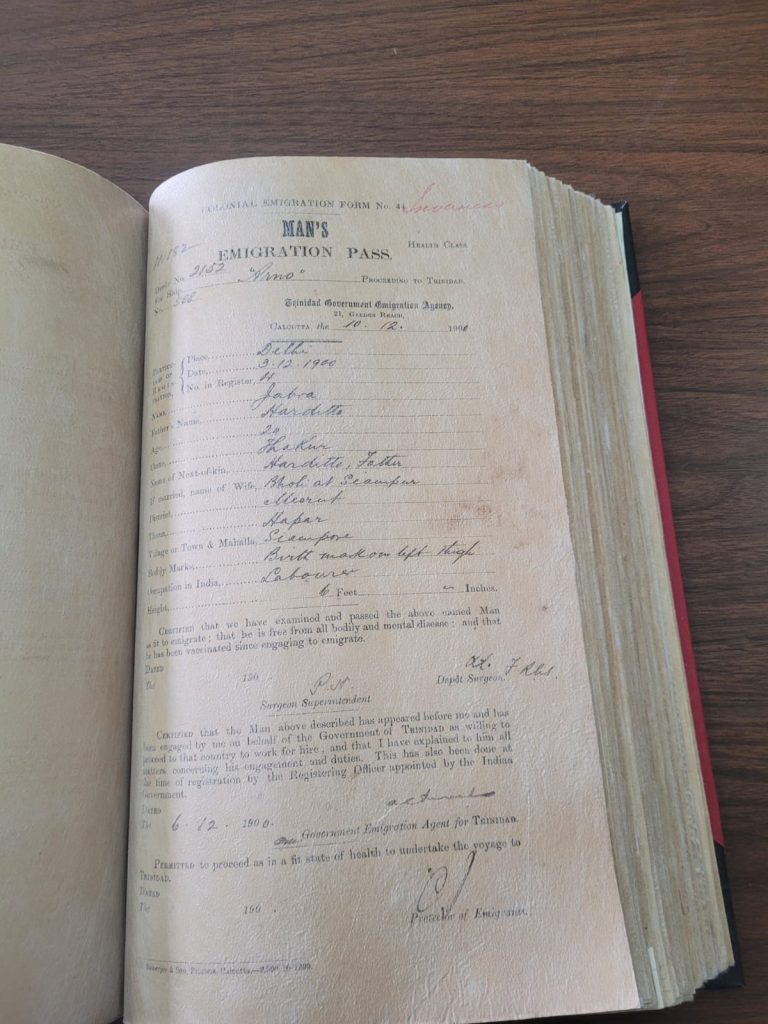 COLONIAL EMIGRATION FORM No. 44 Inverness
MAN'S
HEALTH CLASS
EMIGRATION PASS.
Depôt No. 2152
For Ship "Arno" PROCEEDING TO TRINIDAD.
No. 508
Trinidad Government Emigration Agency,
21, GARDEN REACH,
CALCUTTA, the 10. 12. 1900
PARTICULARS OF REGISTRATION, Place, Delhi
Date, 3.12.1900
No. in Register, 4
Name, Jabra
Father's Name, Harditta
Age, 20
Caste, Thakur
Name of Next-of-kin, Harditta, Father
If married, name of Wife, Bholi at Seampur
District, Meerut
Thana, Hapar
Village or Town & Mahalla, Seampore
Bodily Marks, Birth mark on left thigh
Occupation in India, Labourer
Height, 6 Feet " Inches.
CERTIFIED that we have examined and passed the above named Man
as fit to emigrate; that he is free from all bodily and mental disease; and that
he has been vaccinated since engaging to emigrate.
DATED
The 190
Depôt Surgeon.
Surgeon Superintendent
CERTIFIED that the Man above described has appeared before me and has
been engaged by me on behalf of the Government of TRINIDAD as willing to
proceed to that country to work for hire; and that I have explained to him all
matters concerning his engagement and duties. This has also been done at
the time of registration by the Registering Officer appointed by the Indian
Government.
DATED
The 6. 12. 1900.
Government Emigration Agent for TRINIDAD.
PERMITTED to proceed as in a fit state of health to undertake the voyage to
TRINIDAD.
DATED
The 190 .
Protector of Emigrants.
Banerjee & Son, Printers, Calcutta.—2,500